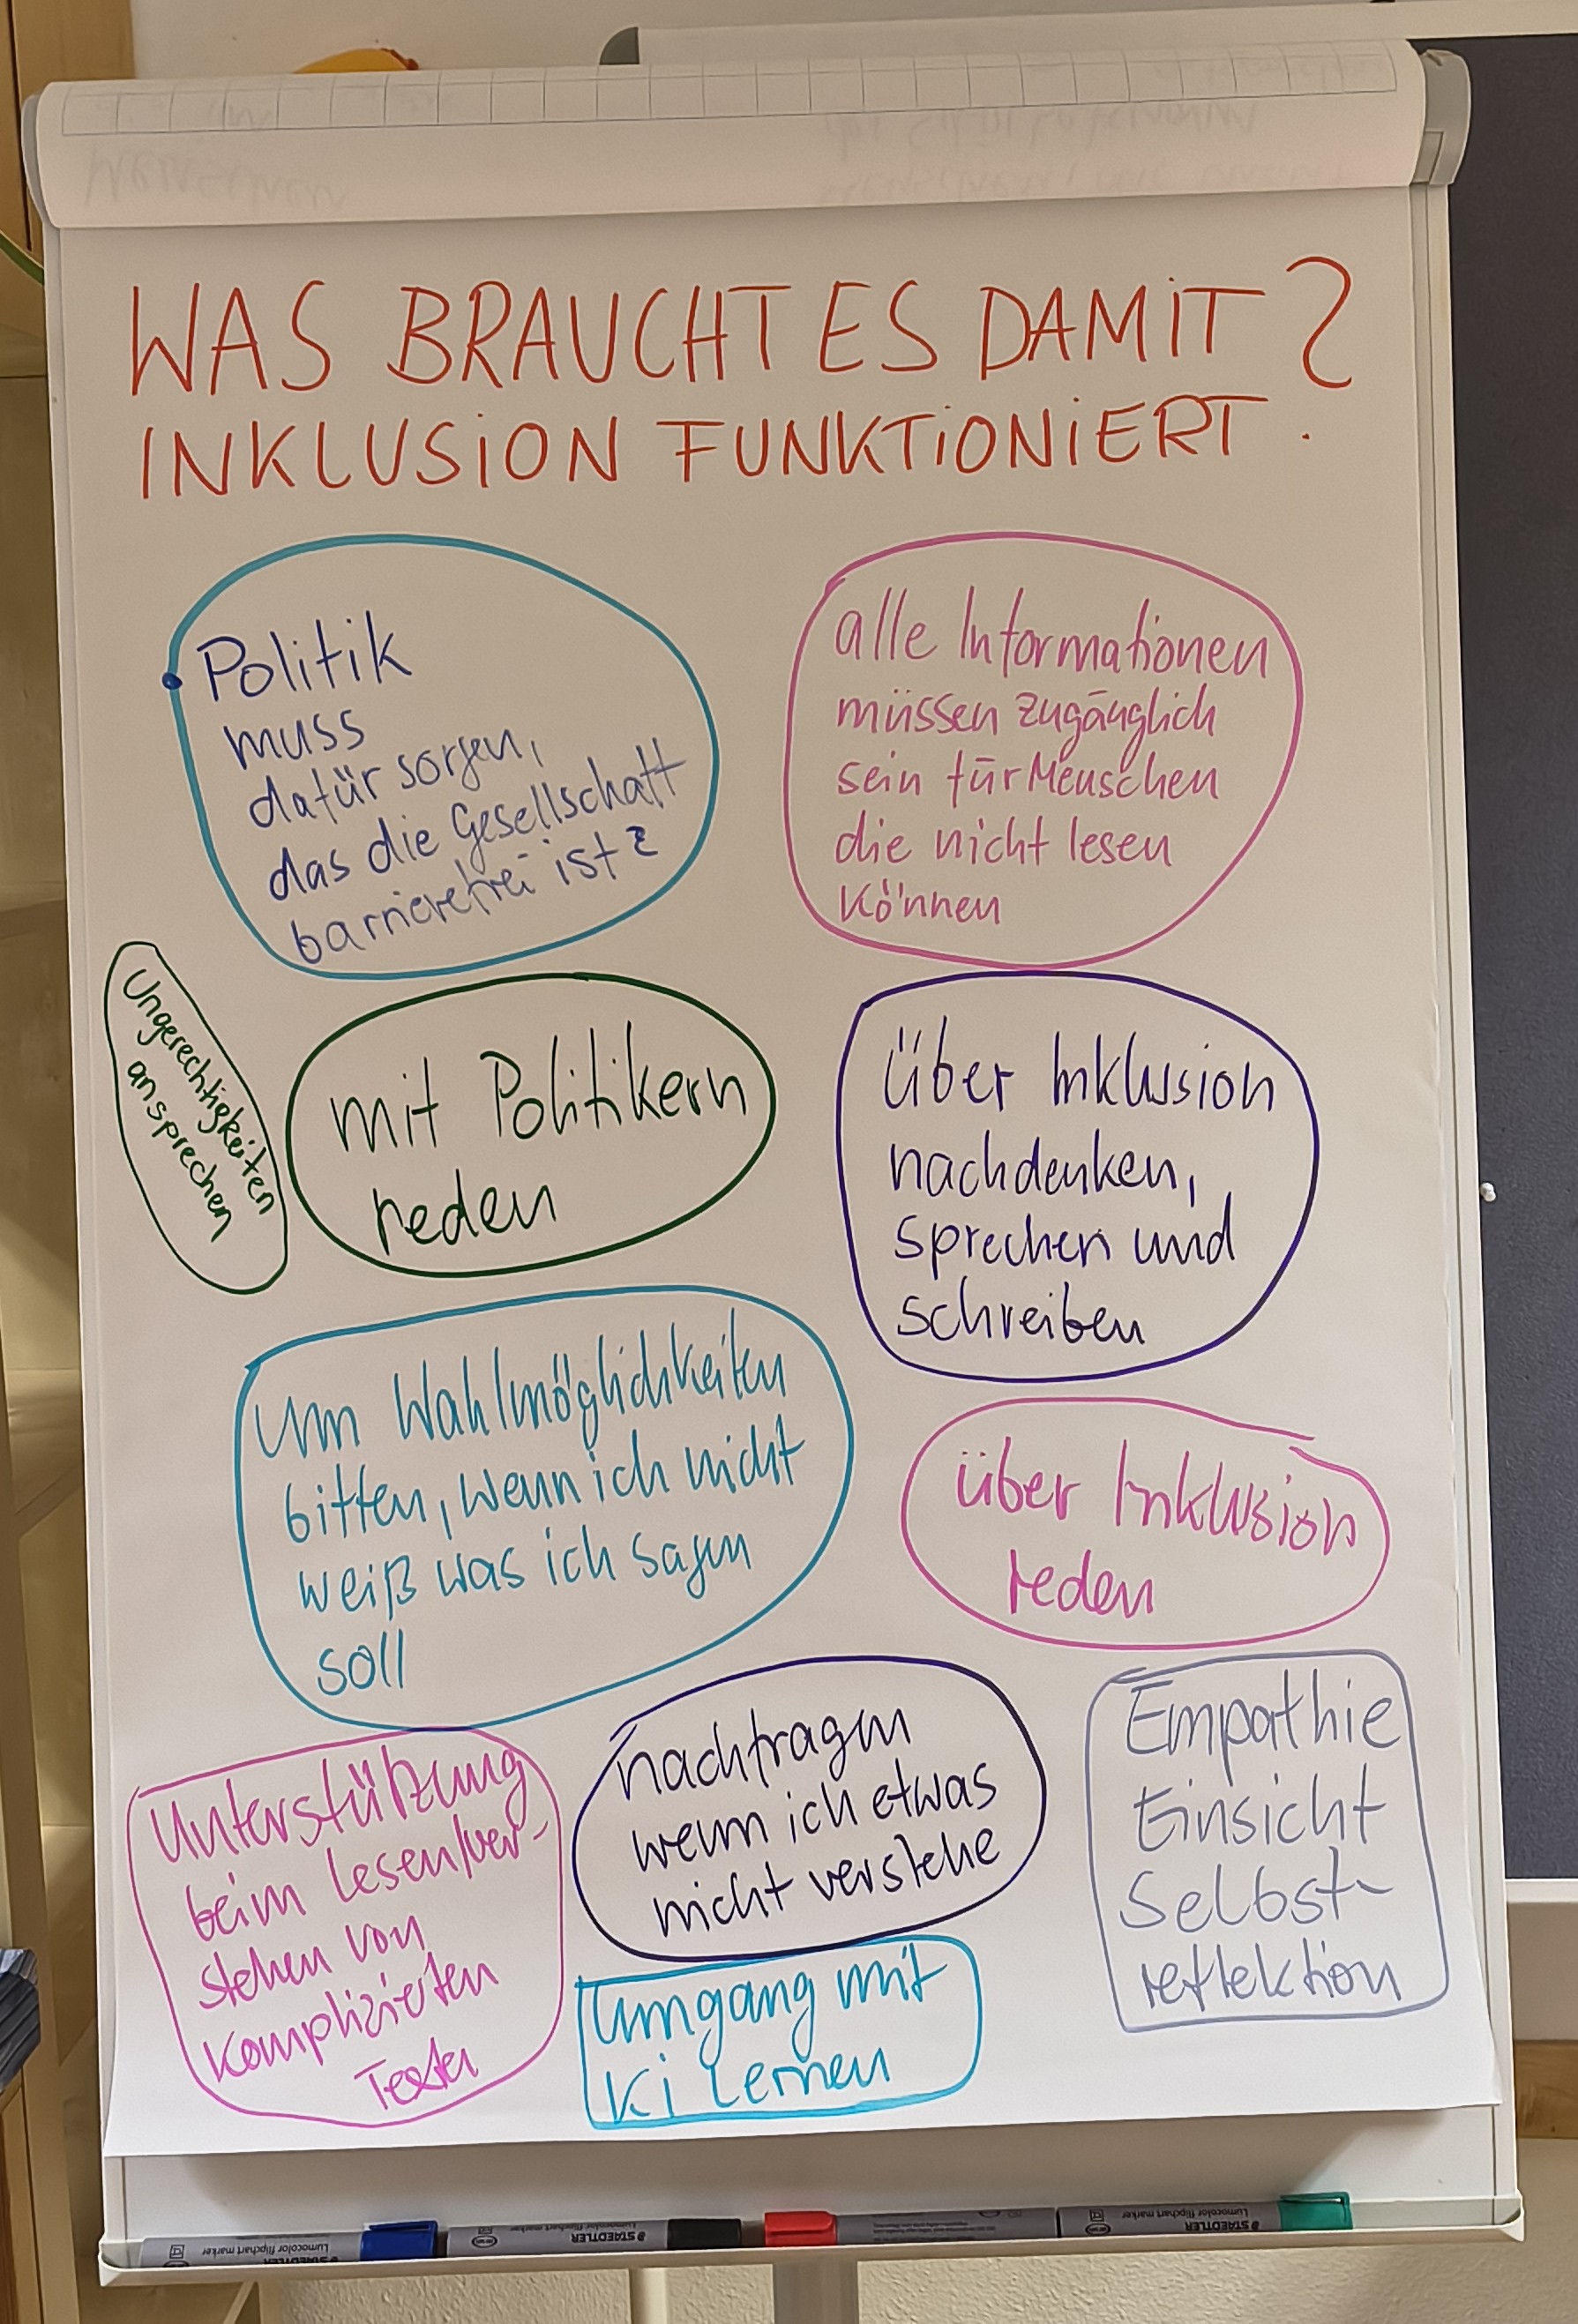 WAS BRAUCHT ES DAMIT
INKLUSION FUNKTIONIERT ?
Politik
muss
dafür sorgen,
das die Gesellschaft
barrierefrei ist
alle Informationen
müssen zugänglich
sein für Menschen
die nicht lesen
können
Ungerechtigkeiten
ansprechen
mit Politikern
reden
über Inklusion
nachdenken,
sprechen und
schreiben
um Wahlmöglichkeiten
bitten, wenn ich nicht
weiß was ich sagen
soll
über Inklusion
reden
Unterstützung
beim Lesen/ver-
stehen von
komplizierten
Texten
nachfragen
wenn ich etwas
nicht verstehe
Empathie
Einsicht
Selbst-
reflektion
Umgang mit
Ki Lernen
STAEDTLER
Lumocolor flipchart marker
STAEDTLER
Lumocolor flipchart marker
STAEDTLER
Lumocolor flipchart marker